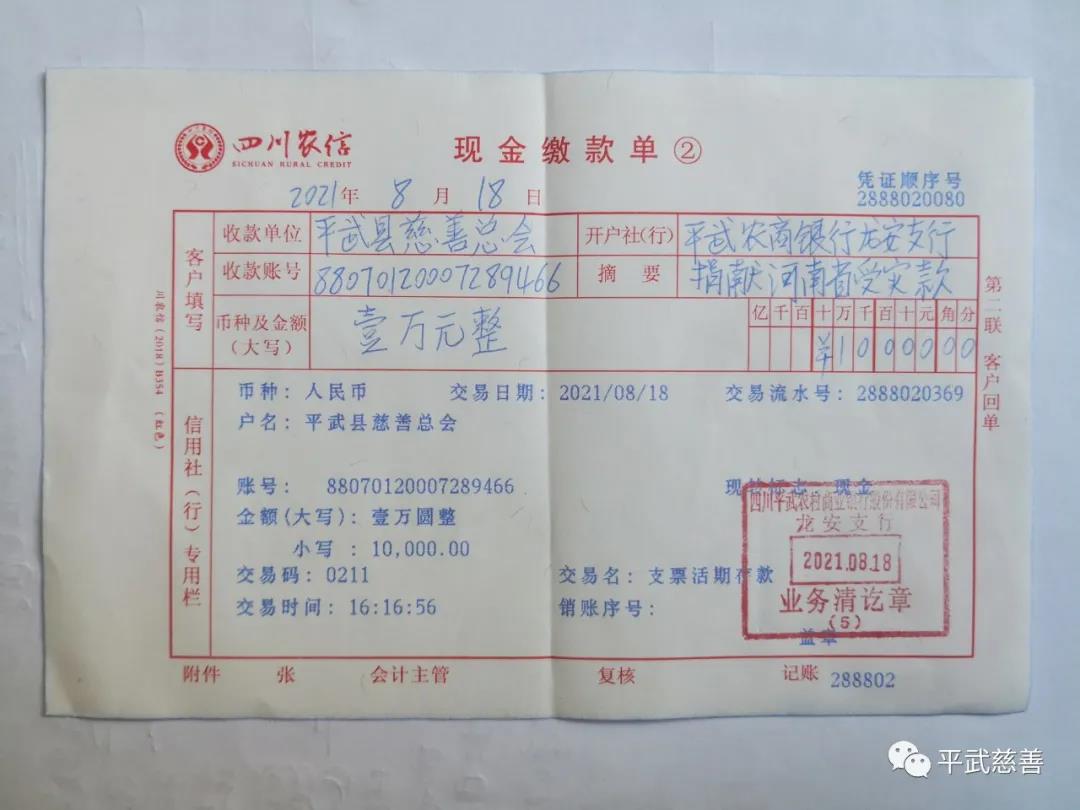 四川农信
SICHUAN RURAL CREDIT
现金缴款单②
2021年 8月 18日
凭证顺序号
2888020080
客户填写
收款单位 平武县慈善总会 开户社(行) 平武农商银行龙安支行
收款账号 88070120007289466 摘要 捐献河南省受灾款
币种及金额
(大写) 壹万元整
亿千百十万千百十元角分
¥1000000
信用社(行)专用栏
币种：人民币 交易日期：2021/08/18 交易流水号：2888020369
户名：平武县慈善总会
账号： 88070120007289466 现转标志 现金
金额(大写)：壹万圆整
小写 ：10,000.00
交易码：0211 交易名：支票活期存款
交易时间：16:16:56 销账序号：
盖章
四川平武农村商业银行股份有限公司
龙安支行
2021.08.18
业务清讫章
(5)
附件 张 会计主管 复核 记账 288802
第二联 客户回单
(2018)B354 (红色)
平武慈善